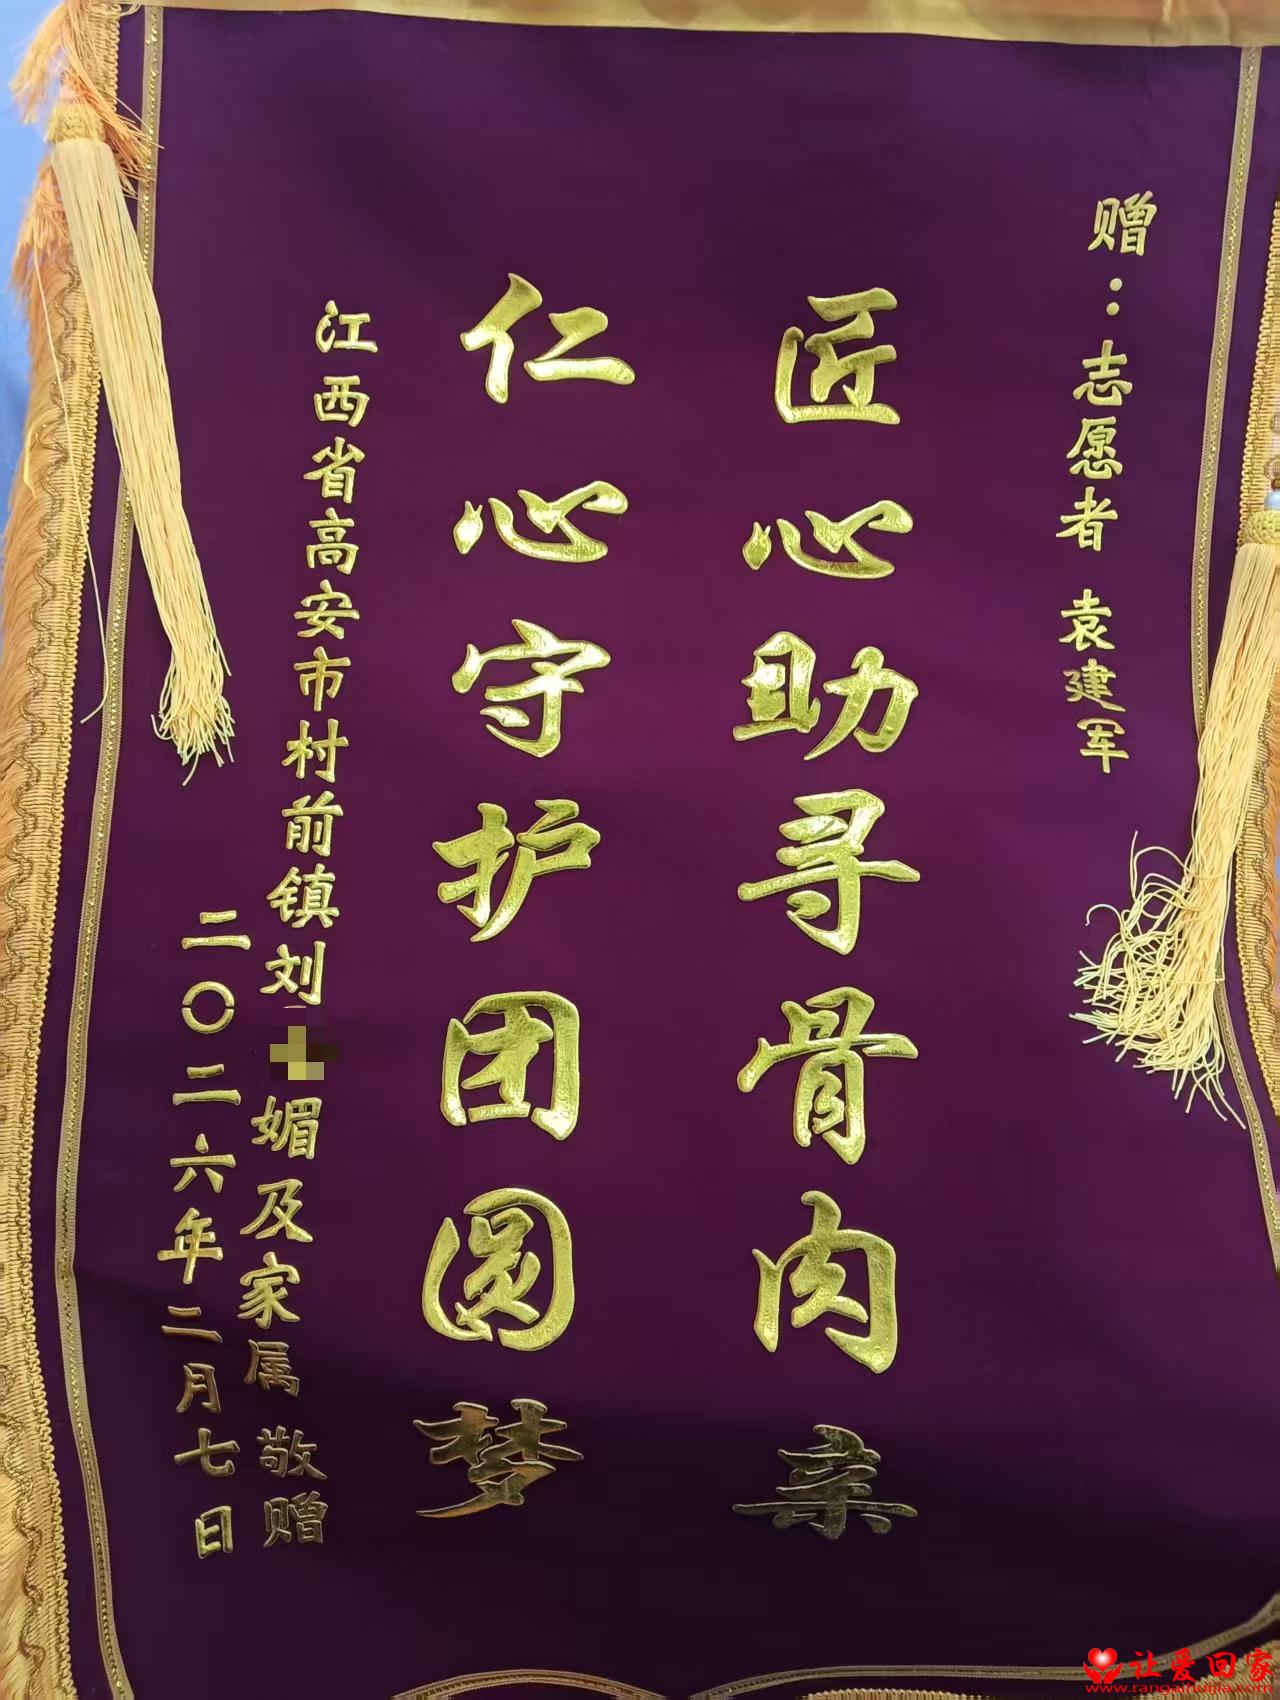 赠：志愿者 袁建军
匠心助寻骨肉亲
仁心守护团圆梦
江西省高安市村前镇刘 媚及家属 敬赠
二〇二六年二月七日
让爱回家
www.rangaihuijia.com